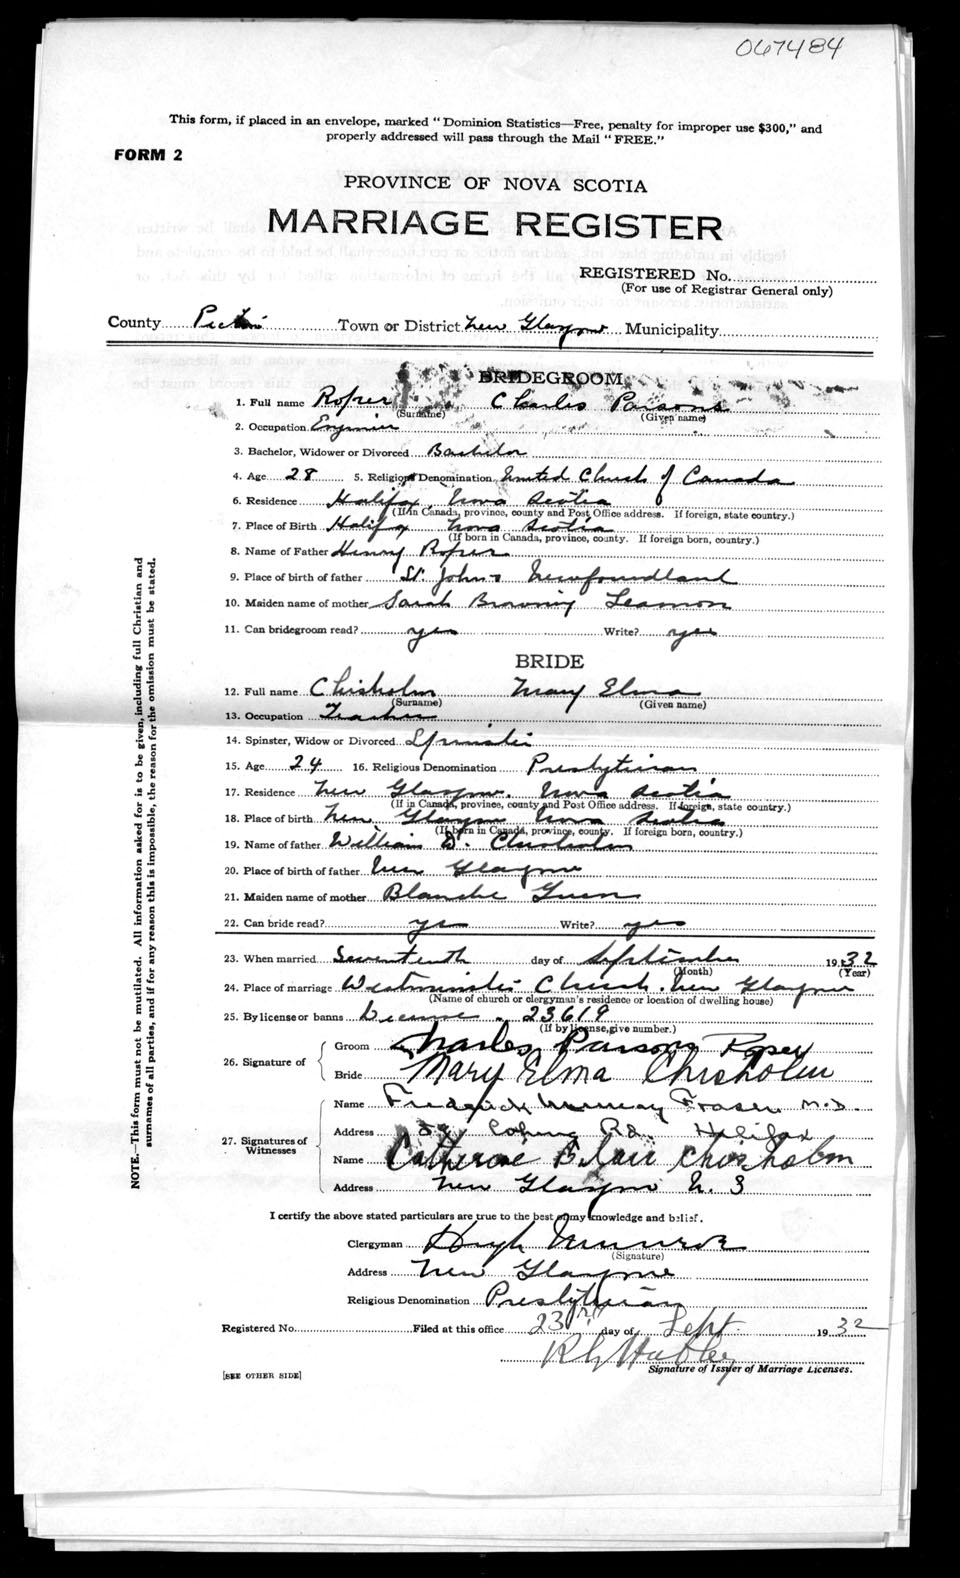 067484
This form, if placed in an envelope, marked "Dominion Statistics—Free, penalty for improper use $300," and
properly addressed will pass through the Mail "FREE."
FORM 2
PROVINCE OF NOVA SCOTIA
MARRIAGE REGISTER
REGISTERED No.
(For use of Registrar General only)
County Pictou Town or District New Glasgow Municipality
BRIDEGROOM
1. Full name Roper Charles Parsons
(Surname) (Given name)
2. Occupation Engineer
3. Bachelor, Widower or Divorced Bachelor
4. Age 28 5. Religious Denomination United Church of Canada
6. Residence Halifax Nova Scotia
(If in Canada, province, county and Post Office address. If foreign, state country.)
7. Place of Birth Halifax Nova Scotia
(If born in Canada, province, county. If foreign born, country.)
8. Name of Father Henry Roper
9. Place of birth of father St. John's Newfoundland
10. Maiden name of mother Sarah Browning Leamon
11. Can bridegroom read? yes Write? yes
BRIDE
12. Full name Chisholm Mary Elma
(Surname) (Given name)
13. Occupation Teacher
14. Spinster, Widow or Divorced Spinster
15. Age 24 16. Religious Denomination Presbyterian
17. Residence New Glasgow. Nova Scotia
(If in Canada, province, county and Post Office address. If foreign, state country.)
18. Place of birth New Glasgow Nova Scotia
(If born in Canada, province, county. If foreign born, country.)
19. Name of father William D. Chisholm
20. Place of birth of father New Glasgow
21. Maiden name of mother Blanche
22. Can bride read? yes Write? yes
23. When married Seventeenth day of September 1932
(Month) (Year)
24. Place of marriage Westminster Church. New Glasgow
(Name of church or clergyman's residence or location of dwelling house)
25. By license or banns License - 23619
(If by license, give number.)
26. Signature of
Groom Charles Parsons Roper
Bride Mary Elma Chisholm
27. Signatures of
Witnesses
Name Frederick Murray Fraser M.D.
Address Coburg Rd. Halifax
Name Catherine Blair Chisholm
Address New Glasgow N. S
I certify the above stated particulars are true to the best of my knowledge and belief.
Clergyman Hugh Munroe
(Signature)
Address New Glasgow
Religious Denomination Presbyterian
Registered No. Filed at this office 23rd day of Sept. 1932
Signature of Issuer of Marriage Licenses.
[SEE OTHER SIDE]
NOTE.—This form must not be mutilated. All information asked for is to be given, including full Christian and
surnames of all parties, and if for any reason this is impossible, the reason for the omission must be stated.